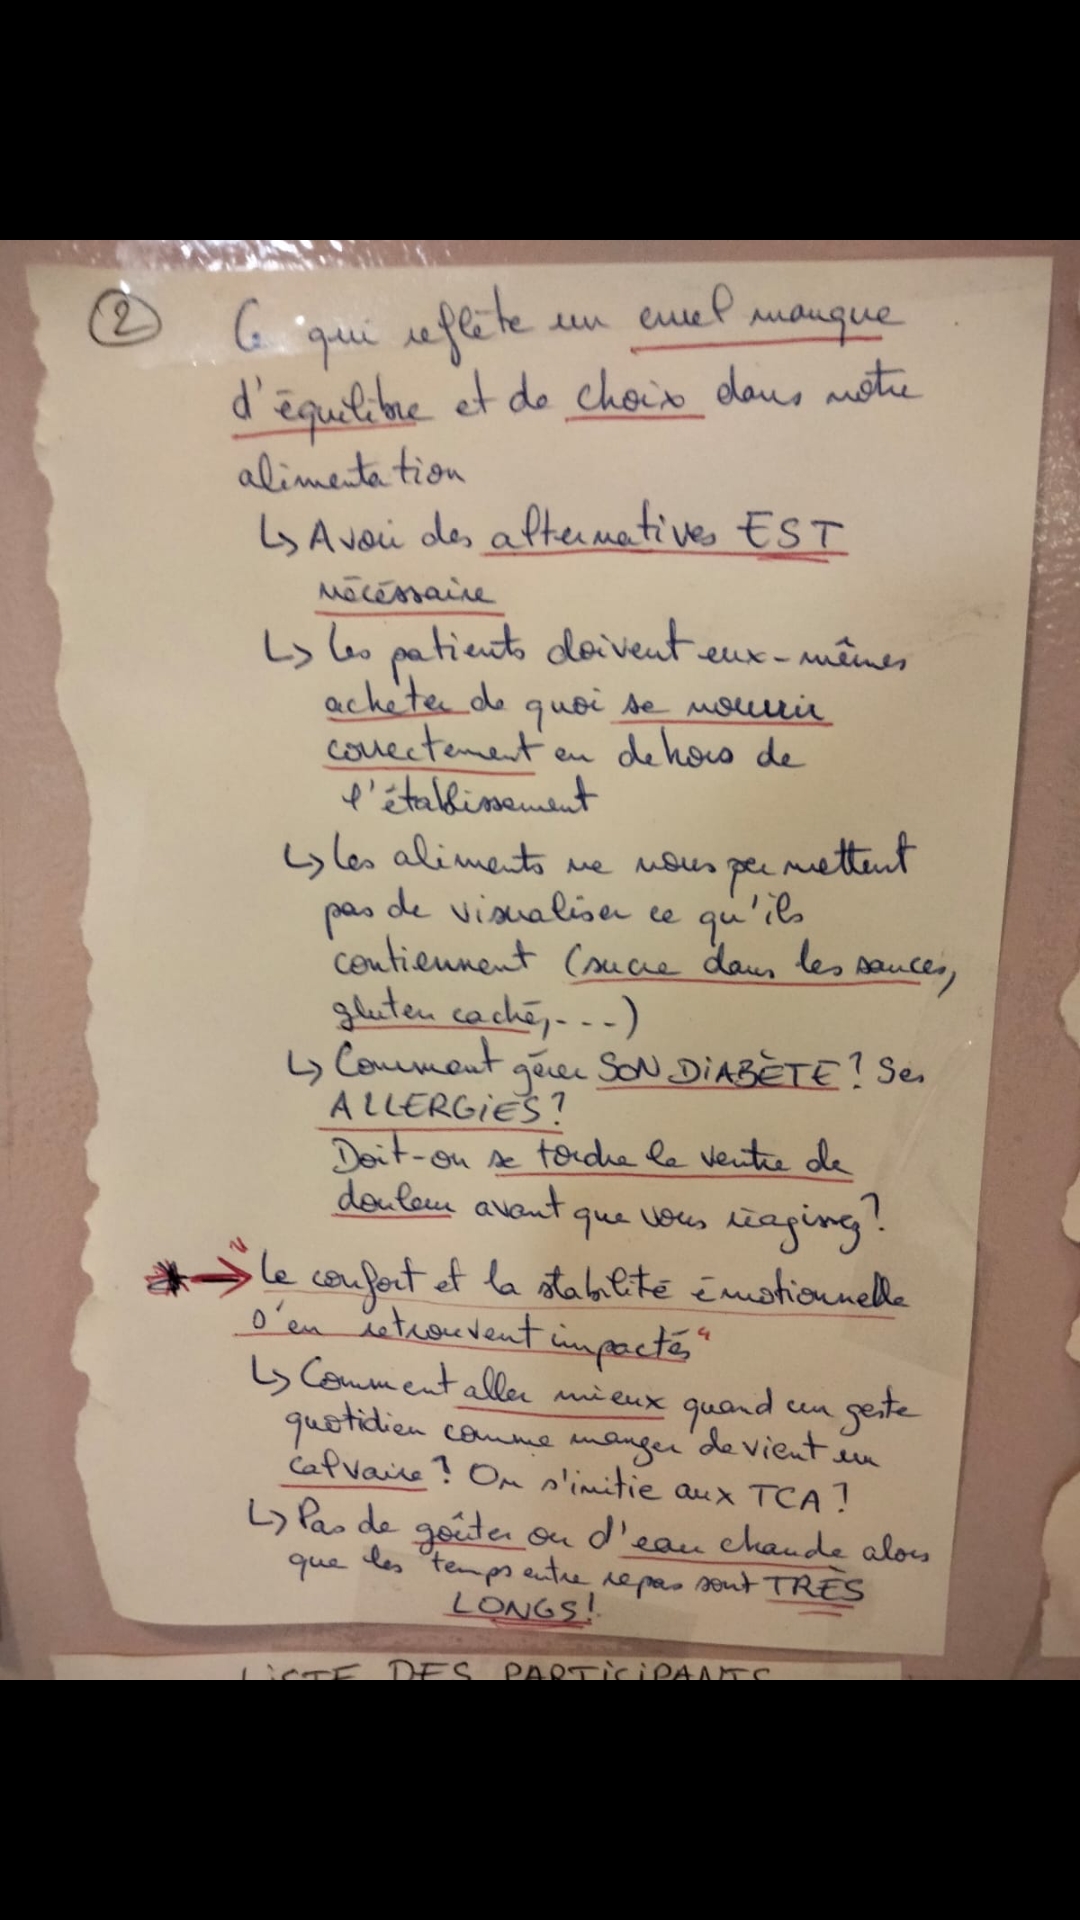 ②
Ce qui reflète un cruel manque
d'équilibre et de choix dans notre
alimentation
↳ Avoir des alternatives EST
nécéssaire
↳ Les patients doivent eux-mêmes
acheter de quoi se nourrir
correctement en dehors de
l'établissement
↳ Les aliments ne nous permettent
pas de visualiser ce qu'ils
contiennent (sucre dans les sauces,
gluten caché,...)
↳ Comment gérer SON DIABÈTE? Ses
ALLERGIES?
Doit-on se tordre le ventre de
douleur avant que vous réagissez?
→ "Le confort et la stabilité émotionnelle
s'en retrouvent impactés"
↳ Comment aller mieux quand un geste
quotidien comme manger devient un
calvaire? On s'initie aux TCA?
↳ Pas de goûter ou d'eau chaude alors
que les temps entre repas sont TRÈS
LONGS!
LISTE DES PARTICIPANTS